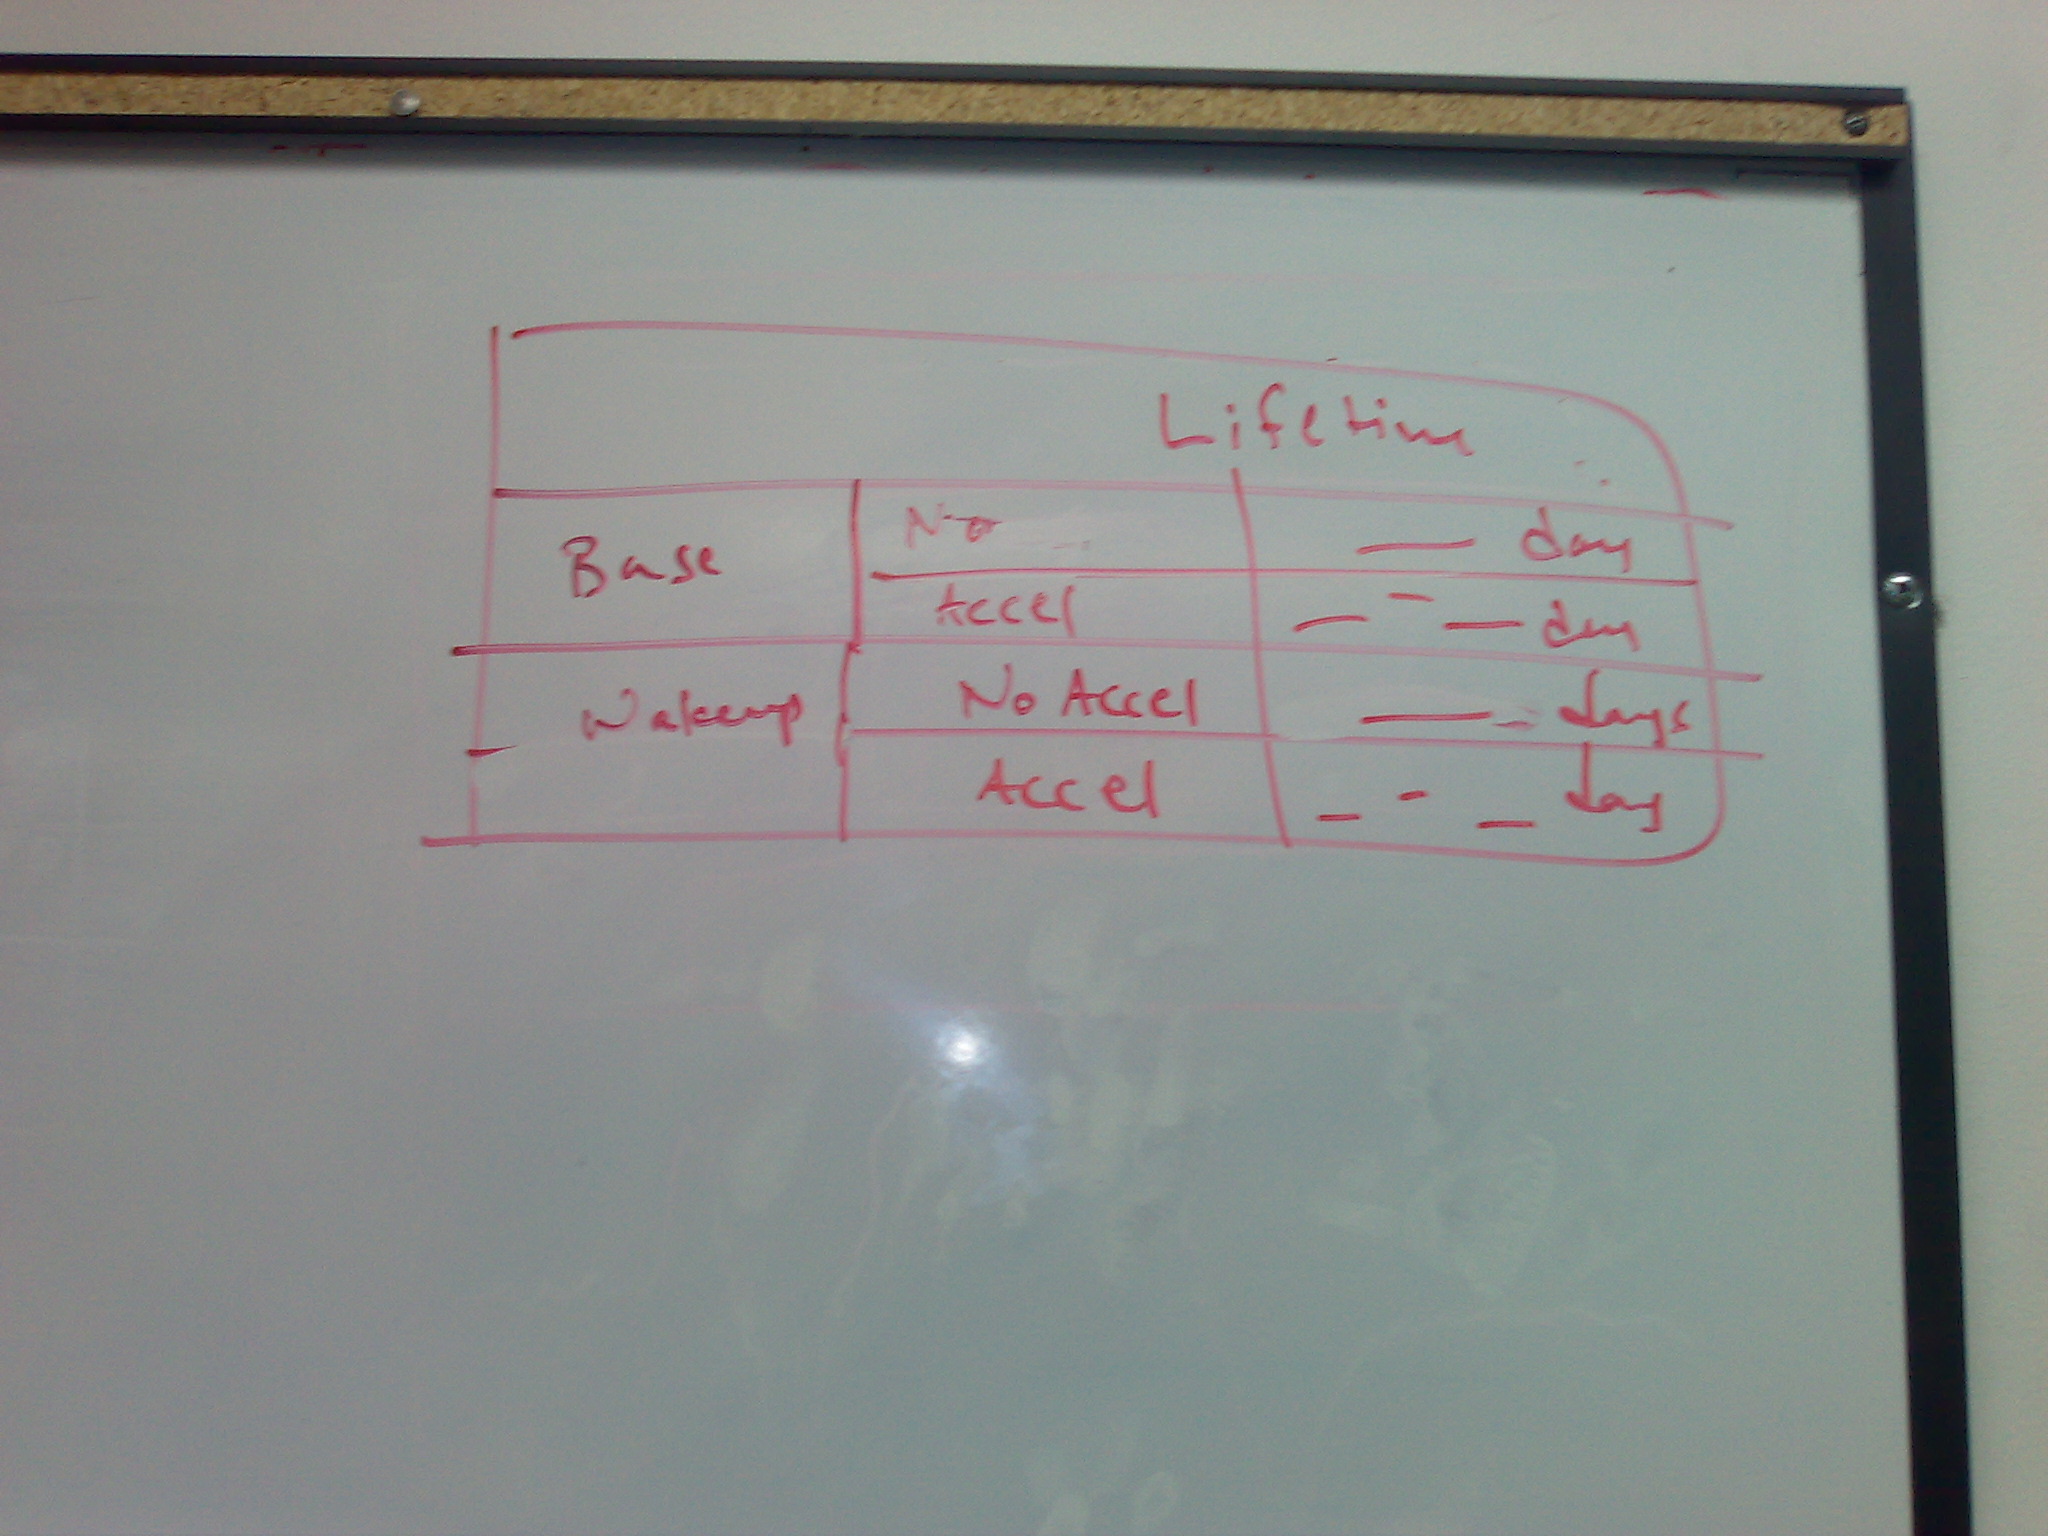 Lifetime
Base No day
Accel day
Wakeup No Accel days
Accel day